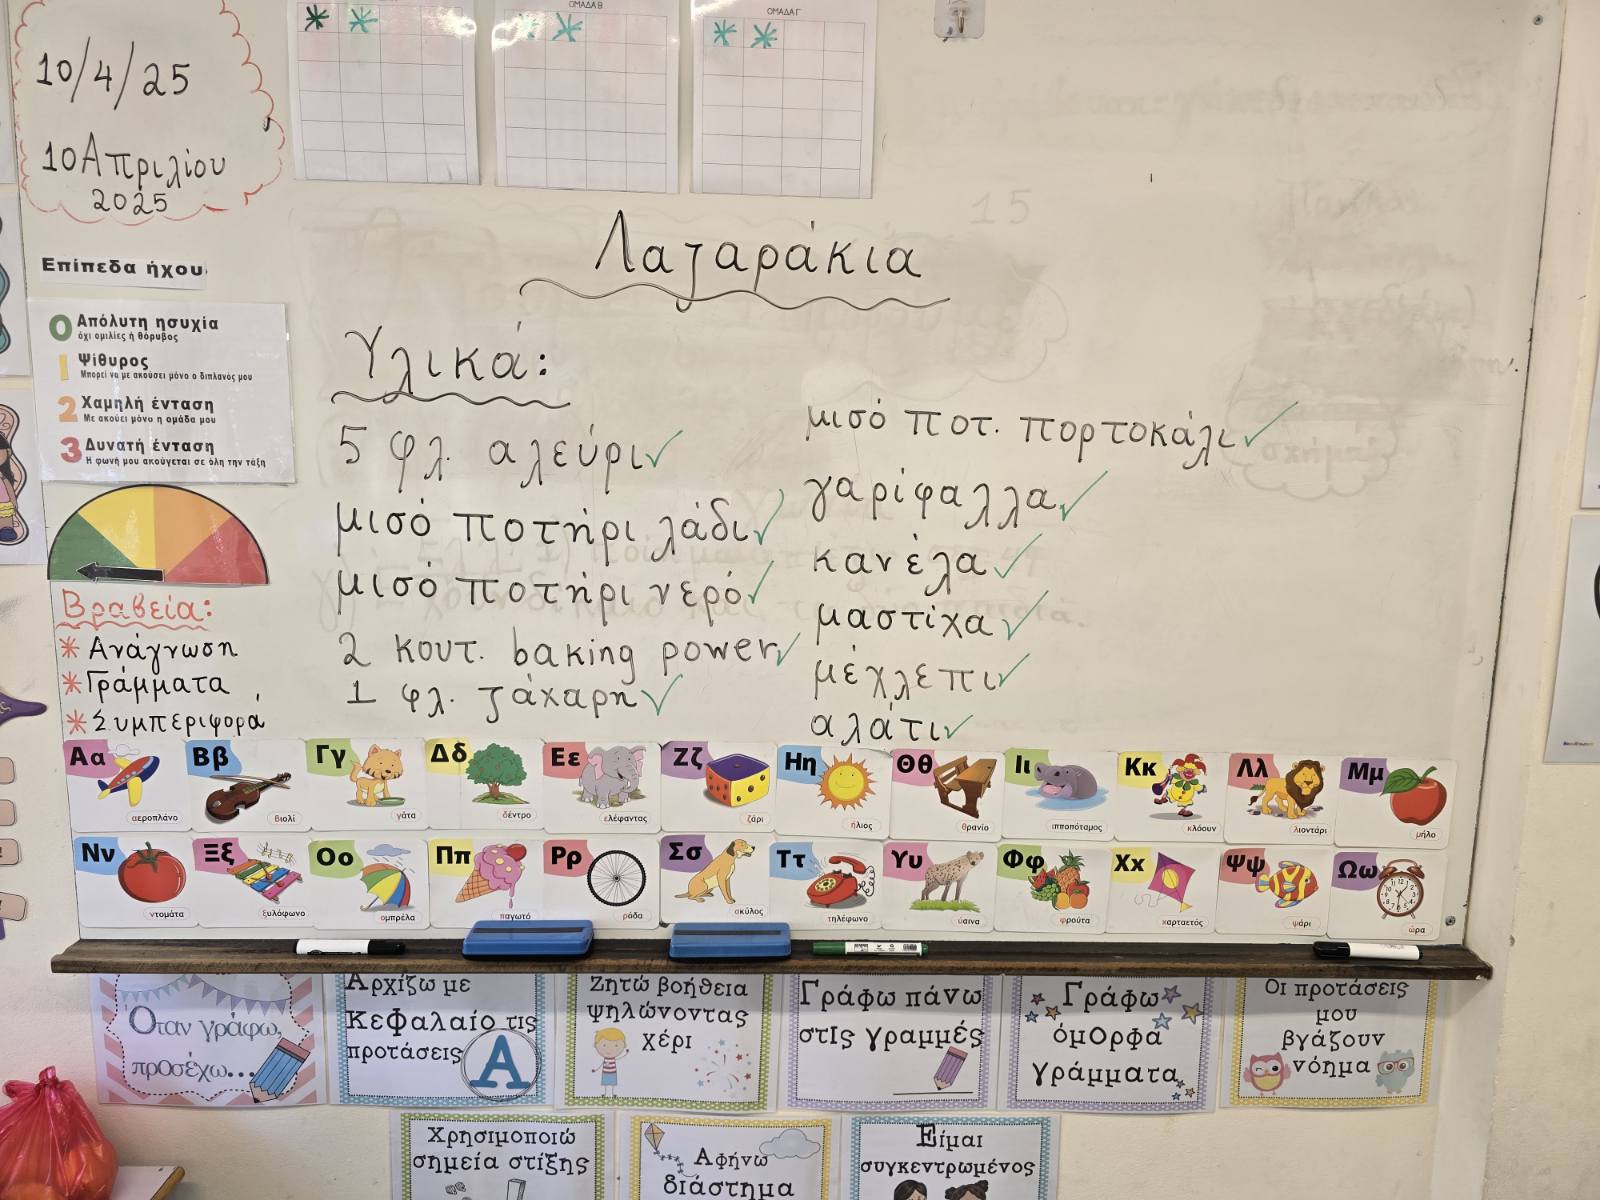 ΟΜΑΔΑ Β
ΟΜΑΔΑ Γ
10/4/25
10 Απριλίου
2025
Λαζαράκια
Επίπεδα ήχου
0 Απόλυτη ησυχία
όχι ομιλίες ή θόρυβος
1 Ψίθυρος
Μπορεί να με ακούσει μόνο ο διπλανός μου
2 Χαμηλή ένταση
Με ακούει μόνο η ομάδα μου
3 Δυνατή ένταση
Η φωνή μου ακούγεται σε όλη την τάξη
Βραβεία:
* Ανάγνωση
* Γράμματα
* Συμπεριφορά
Υλικά:
5 φλ. αλεύρι ✓
μισό ποτήρι λάδι ✓
μισό ποτήρι νερό ✓
2 κουτ. baking power ✓
1 φλ. ζάχαρη ✓
μισό ποτ. πορτοκάλι ✓
γαρίφαλλα ✓
κανέλα ✓
μαστίχα ✓
μέχλεπι ✓
αλάτι ✓
Αα αεροπλάνο
Ββ βιολί
Γγ γάτα
Δδ δέντρο
Εε ελέφαντας
Ζζ ζάρι
Ηη ήλιος
Θθ θρανίο
Ιι ιπποπόταμος
Κκ κλόουν
Λλ λιοντάρι
Μμ μήλο
Νν ντομάτα
Ξξ ξυλόφωνο
Οο ομπρέλα
Ππ παγωτό
Ρρ ρόδα
Σσ σκύλος
Ττ τηλέφωνο
Υυ ύαινα
Φφ φρούτα
Χχ χαρταετός
Ψψ ψάρι
Ωω ώρα
Όταν γράφω,
προσέχω...
Αρχίζω με
κεφαλαίο τις
προτάσεις
Α
Ζητώ βοήθεια
ψηλώνοντας
χέρι
Γράφω πάνω
στις γραμμές
Γράφω
όμορφα
γράμματα
Οι προτάσεις
μου
βγάζουν
νόημα
Χρησιμοποιώ
σημεία στίξης
Αφήνω
διάστημα
Είμαι
συγκεντρωμένος